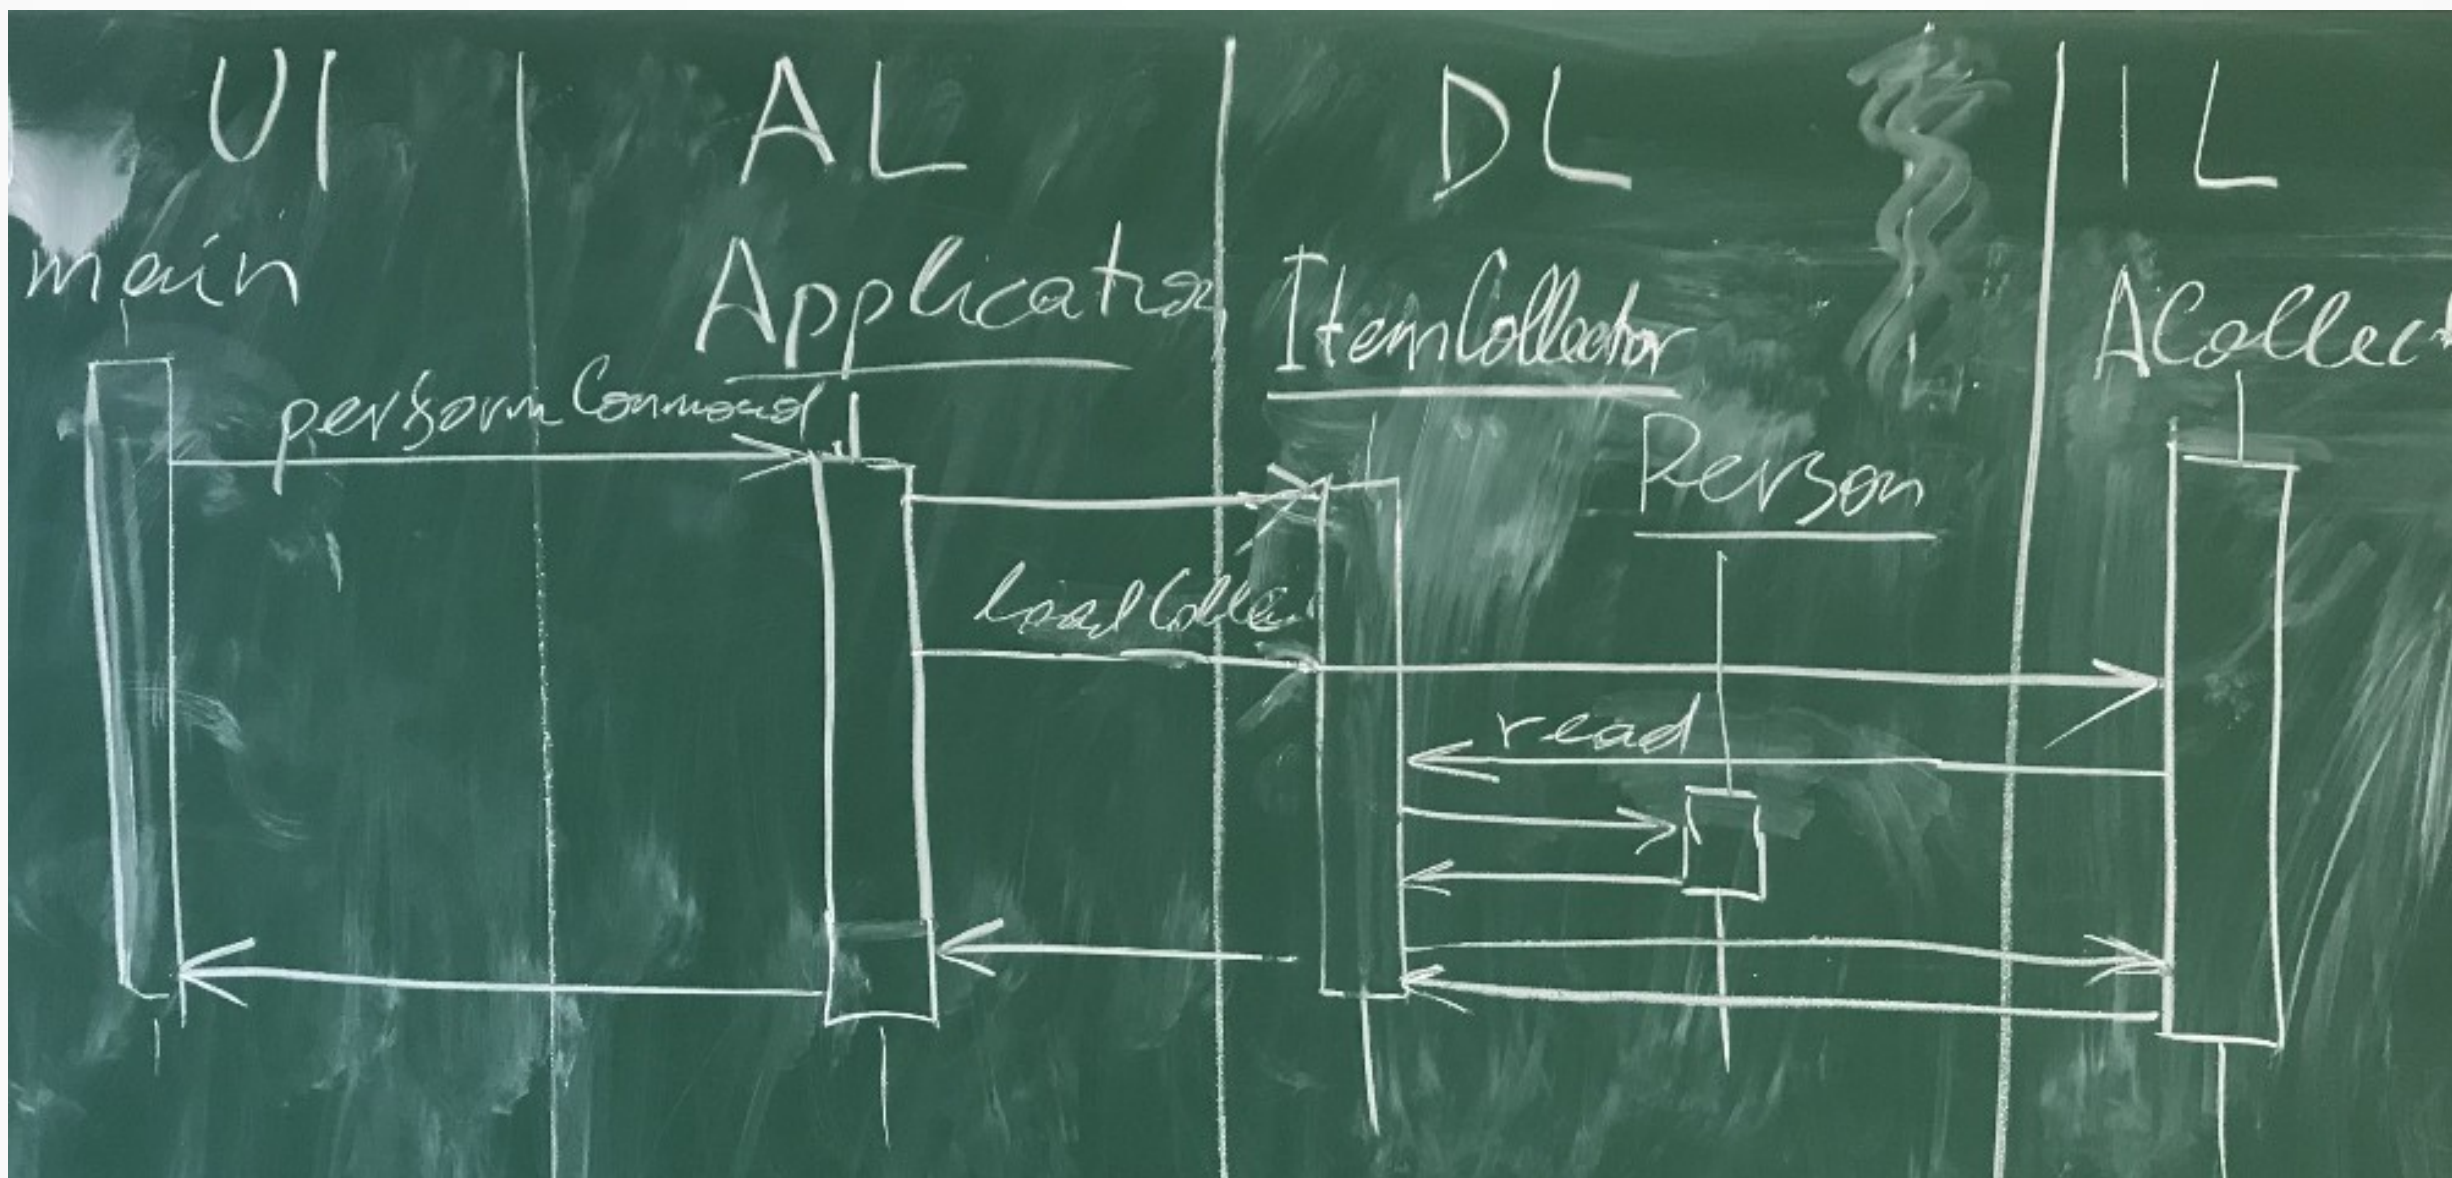 UI AL DL IL
main Application ItemCollector ACollect
performCommand
Person
loadCollec
read